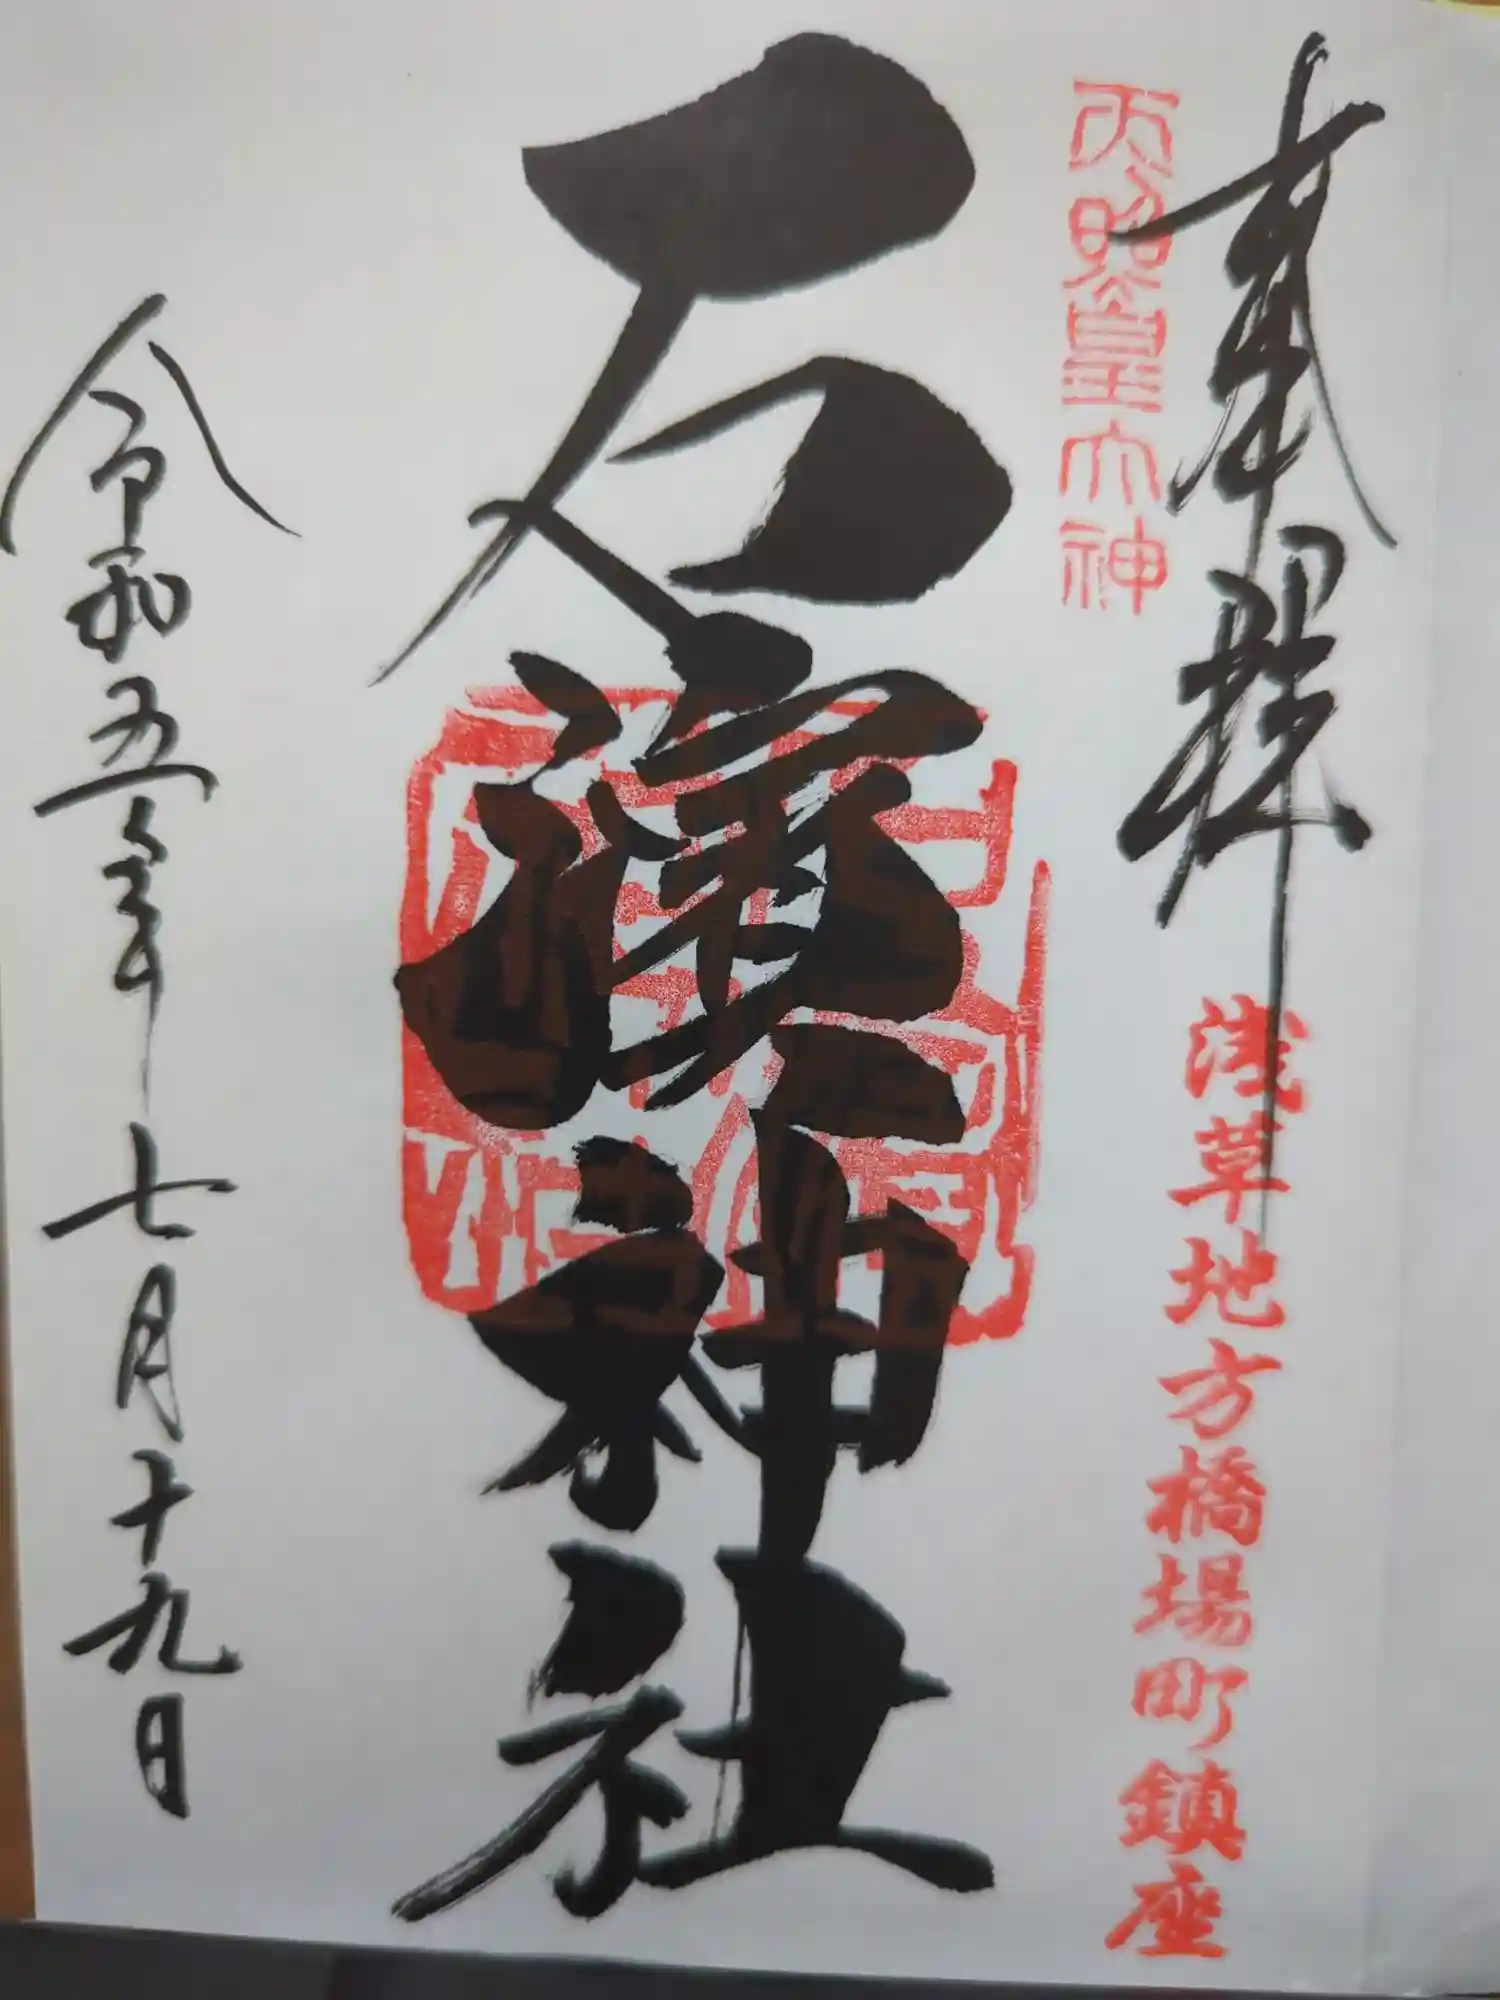 奉拝
浅草地方橋場町鎮座
天照皇大神
石濱神社
令和五年七月十九日